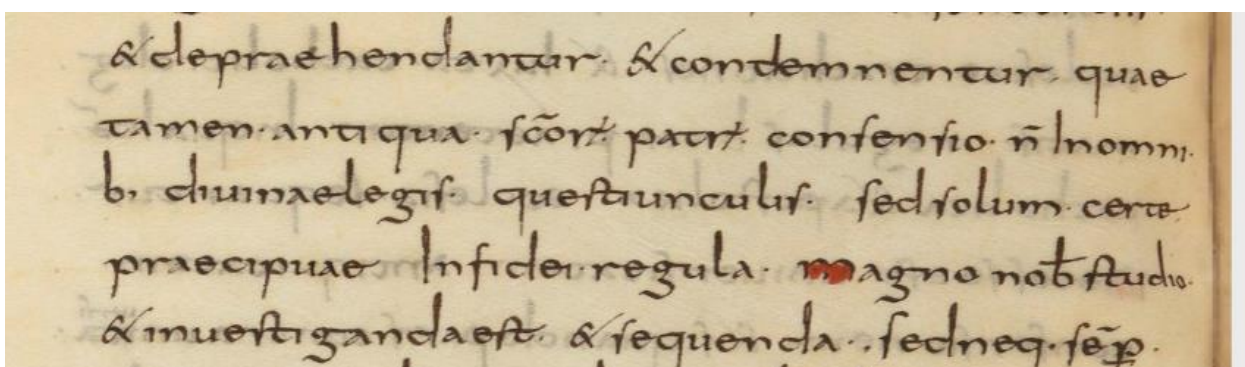 & depraehendantur· & condemnentur· quae
tamen· antiqua· scōrꝝ patrꝝ consensio· n̄ In omni
b; divinae legis· questiunculis· sed solum· certe
praecipuae In fidei regula· magno nob̄ studio·
& investiganda est· & sequenda· sed neq· sēꝑ·